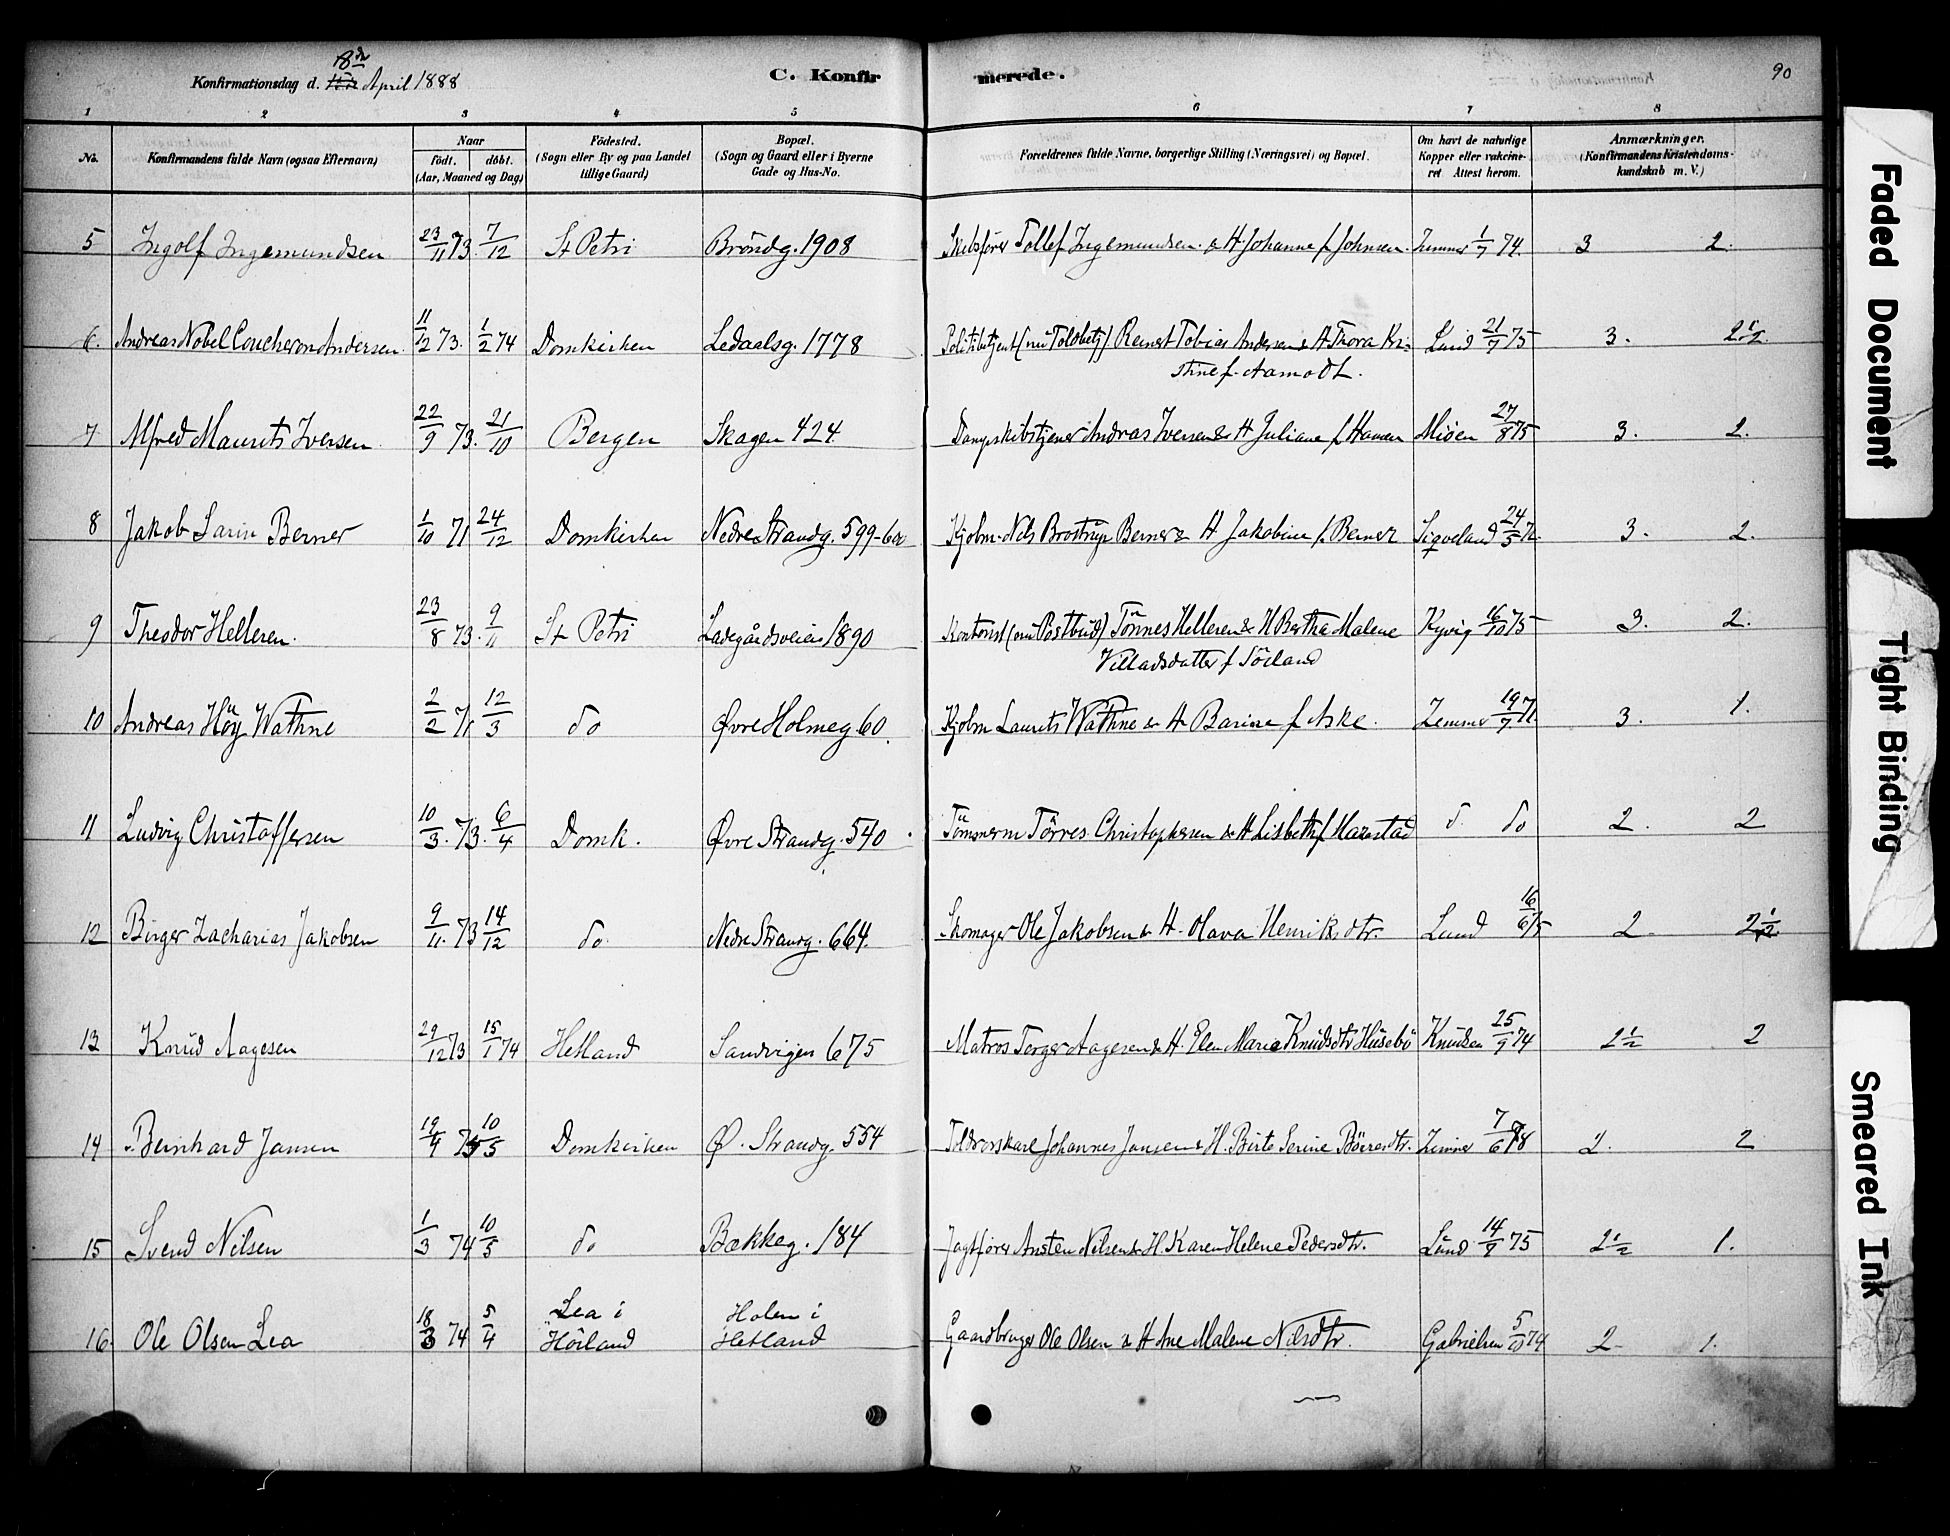 Konfirmationsdag d. 8de April 1888
C. Konfirmerede.
90
1 2 3 4 5 6 7 8
No. Konfirmandens fulde Navn (ogsaa Efternavn) Naar født. døbt. (Aar, Maaned og Dag) Fødested. (Sogn eller By og paa Landet tillige Gaard) Bopæl. (Sogn og Gaard eller i Byerne Gade og Hus-No. Forældrenes fulde Navne, borgerlige Stilling (Næringsvei) og Bopæl. Om havt de naturlige Kopper eller vakcineret. Attest herom. Anmærkninger. (Konfirmandens Kristendomskundskab m. V.)
5 Ingolf Ingemundsen 23/11 73. 7/12 St Petri Brøndg. 1908 Skibsfører Tollef Ingemundsen & H. Johanne f. Johnsen. Zimmer 1/7 74. 3 2.
6. Andreas Nobel Coucheron Andersen. 11/12 73. 1/2 74 Domkirken Ledaalsg. 1778 Politibetjent (nu Toldbetj) Reinert Tobias Andersen & H Thora Kri=
stine f. Aamodt. Lund 21/9 75 3. 2 1/2.
7 Alfred Maurits Iversen 22/9 73. 21/10 Bergen Skagen 424 Dampskibstjener Andras Iversen & H Juliane f Hansen Miöen 27/8 75 3. 2.
8 Jakob Berner 1/10 71 24/12 Domkirken Nedre Strandg. 599-600 Kjøbm. Nils Brostrup Berner & H Jakobine f. Berner Siqveland 24/5 72. 3. 2.
9 Theodor Helleren. 23/8 73. 9/11 St Petri Ladegårdsveien 1890 Kontorist (nu Postbud) Tönnes Helleren & H Bertha Malene
Villadsdatter f Sörland Kyvig 16/10 75 3. 2.
10 Andreas Höy Wathne 2/2 71 12/3 do Øvre Holmeg 60. Kjøbm Laurits Wathne & H Barine f Aske. Zimmer 19/7 71. 3. 1.
11 Ludvig Christoffersen 10/3. 73. 6/4 Domk. Øvre Strandg. 540 Tömmerm Törres Christophersen & H Lisbeth f Harestad d. do 2. 2
12 Birger Zacharias Jakobsen 9/11. 73 14/12 do. Nedre Strandg. 664. Skomager Ole Jakobsen & H. Olava Henriksdtr. Lund 16/6 75 2. 2 1/2
13 Knud Aagesen 29/12 73 15/1 74 Hetland Sandvigen 675 Matros Torger Aagesen & H. Elen Marie Knudsdtr Husebö Knudsen 25/9 74 2 1/2 2
14 Bernhard Jansen 19/4 10/5 Domkirken Ø. Strandg. 554 Toldvorskarl Johannes Jansen & H. Birte Serine Zimmer 7/6 78 2. 2
15 Svend Nilsen 1/3 74 10/5 do Bakkeg. 184 Jagtfører Austen Nilsen & H. Karen Helene Pedersdtr. Lund 14/9 75 2 1/2 1.
16. Ole Olsen Lea 18/3 74 5/4 Lea i
Höiland Holen i
Hetland Gaardbruger Ole Olsen & H Ane Malene Nilsdtr. Gabrielsen 5/10 74 2. 1.
Faded Document
Tight Binding
Smeared Ink